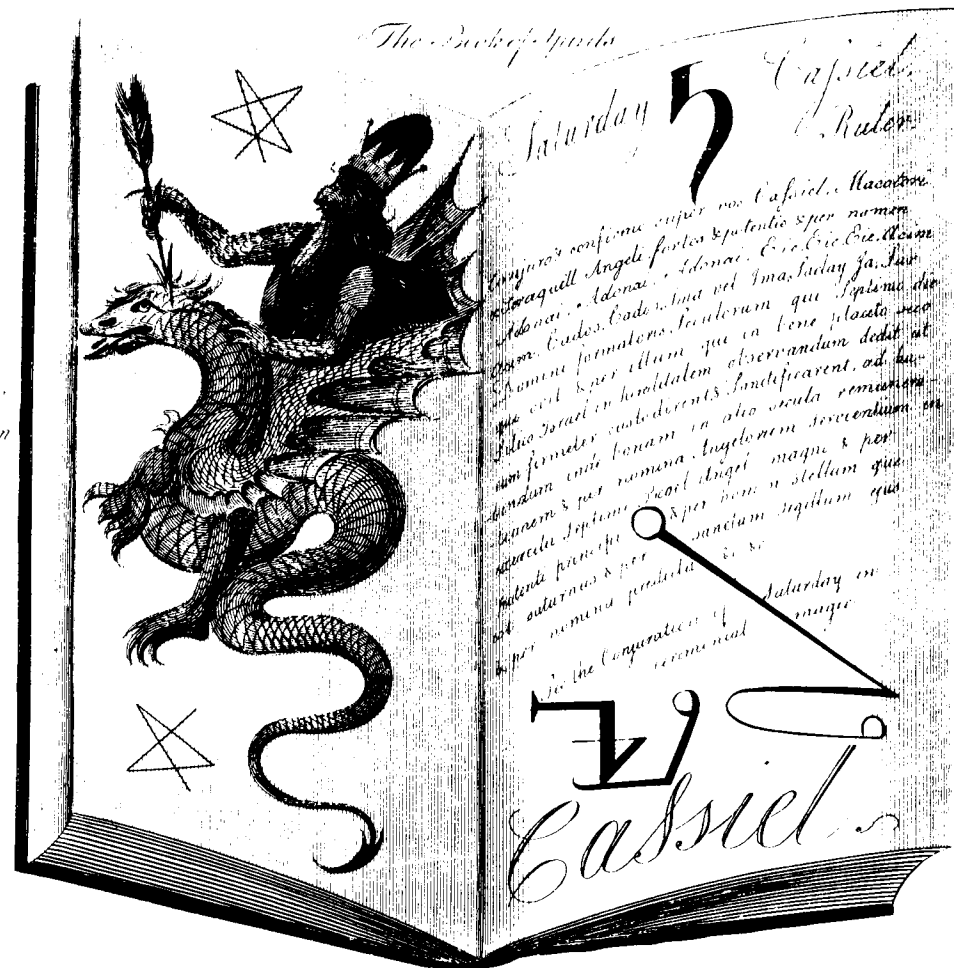 The Book of Spirits
Saturday ♄ Cassiel
Ruler
Conjuro & confirmo super vos Cassiel, Macatori
& Seraquill Angeli fortes & potentis & per nomen
Adonai, Adonai, Adonai, Eie, Eie, Eie, Acim
Cados, Cados, Ima vel Ima, Saday, Ja, Sar
Domini formatoris Seculorum qui Septima die
& per illum qui in bene placito suo
filiis Israel in hereditatem observandum dedit ut
eum firmiter custodirent & Sanctificarent, ad
bonam in alio secula remuner-
& per nomina Angelorum servientium in
Septimo Angel magno & per
potenti principi & per stellam que
est saturnus & per sanctum sigillum ejus
& per nomina predicta &c &c
Is the Conjuration of Saturday in
ceremonial magic
Cassiel
n